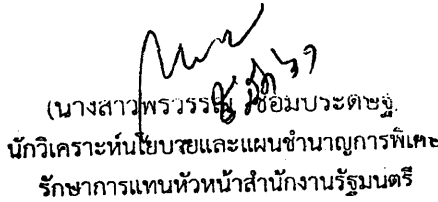 (นางสาวพรวรรณ
นักวิเคราะห์นโยบายและแผนชำนาญการพิเศษ
รักษาการแทนหัวหน้าสำนักงานรัฐมนตรี